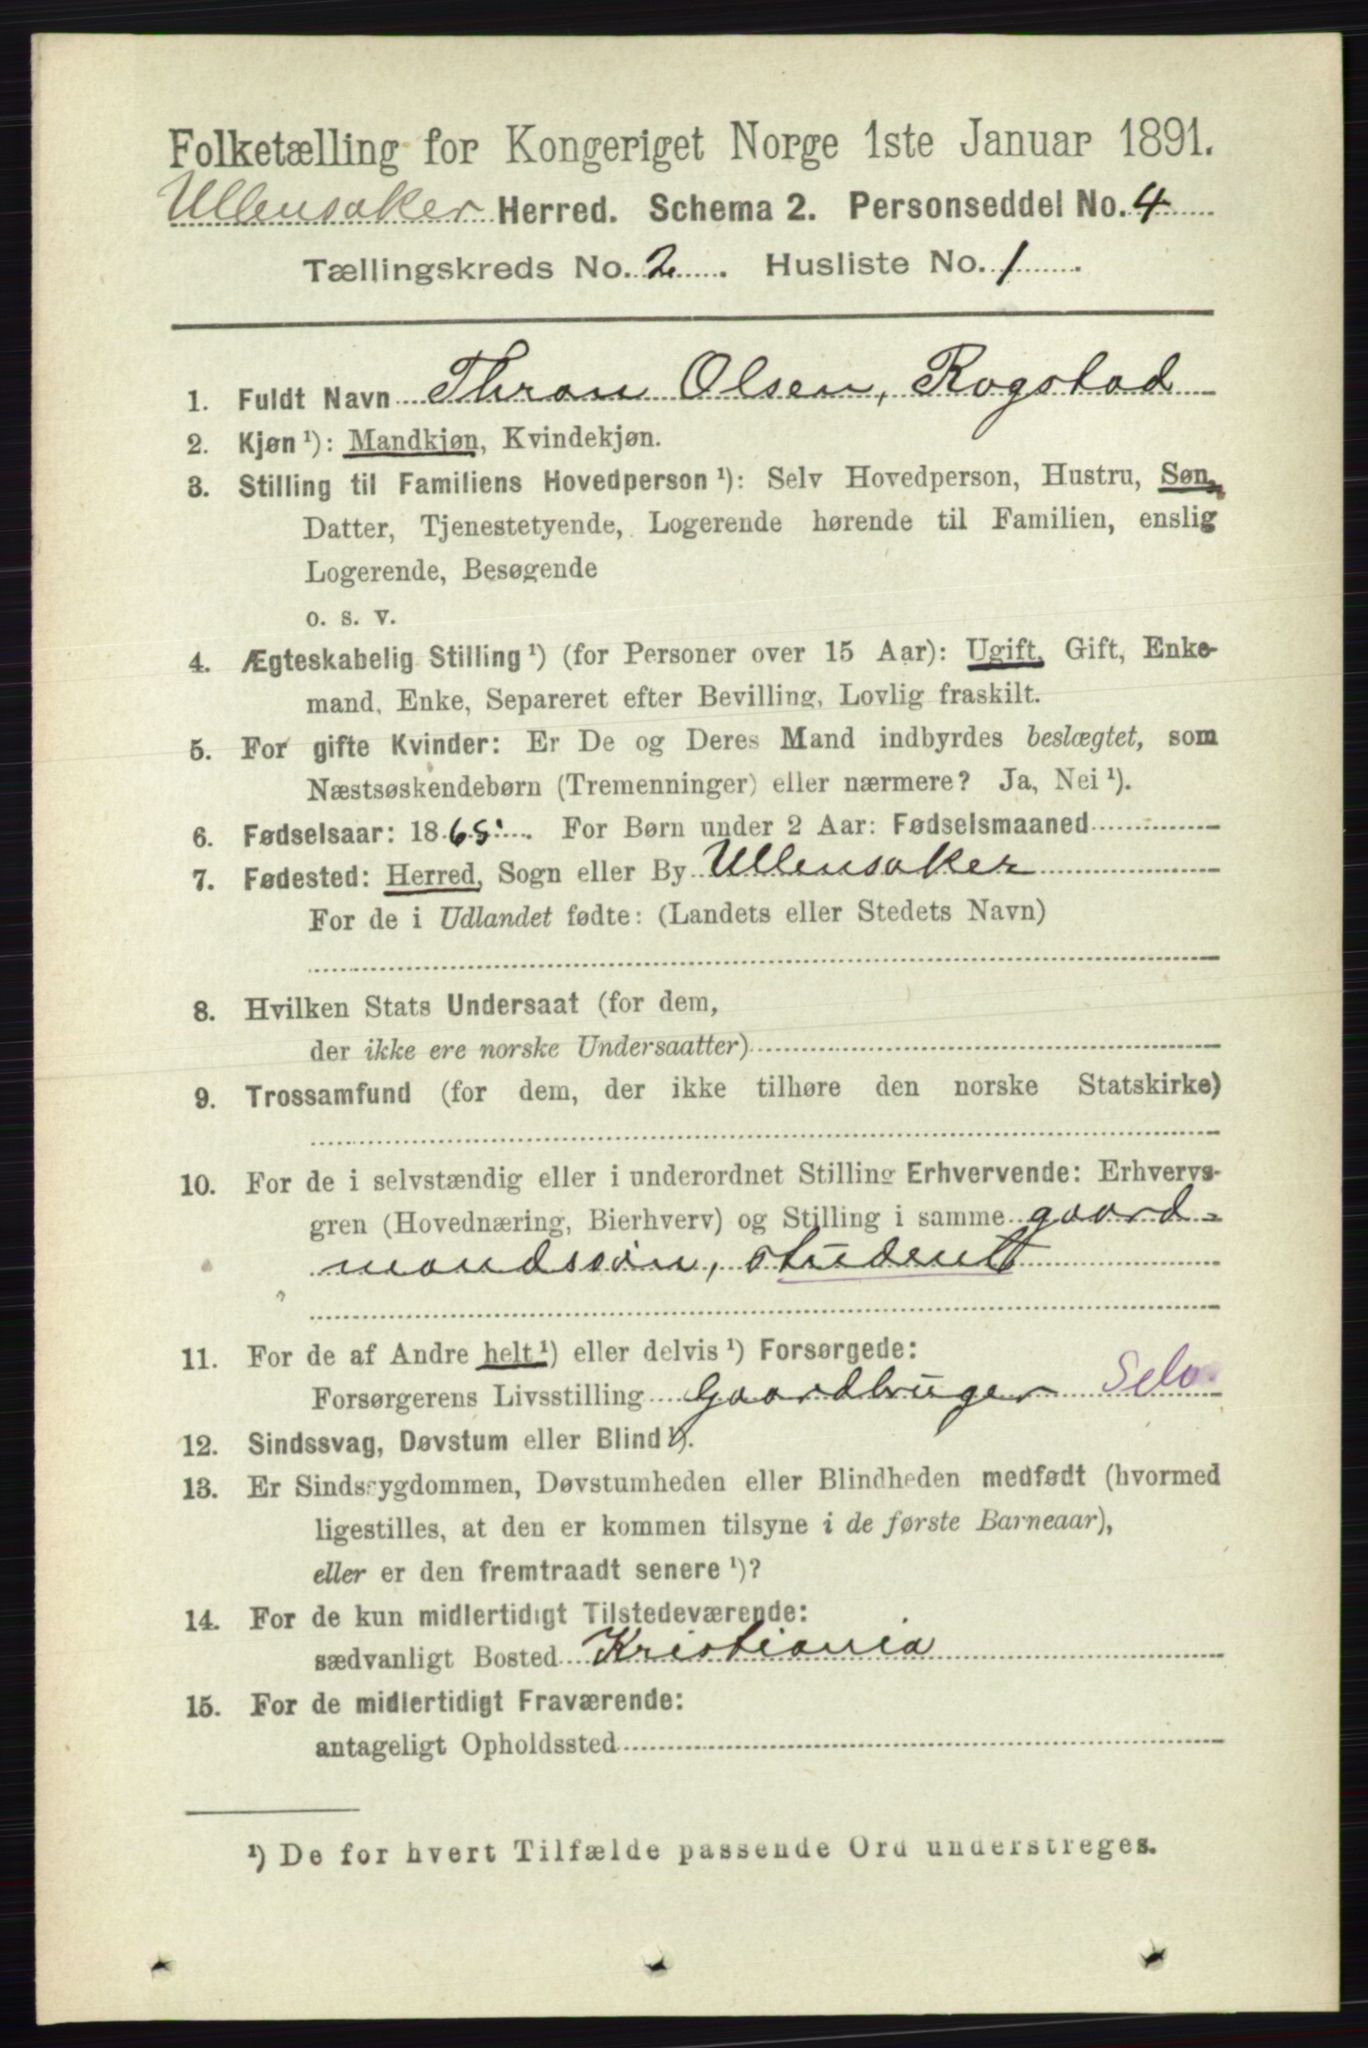 Folketælling for Kongeriget Norge 1ste Januar 1891.
Ullensaker Herred. Schema 2. Personseddel No. 4
Tællingskreds No. 2. Husliste No. 1.
1. Fuldt Navn Thron Olsen, Rogstad
2. Kjøn ¹): Mandkjøn, Kvindekjøn.
3. Stilling til Familiens Hovedperson ¹): Selv Hovedperson, Hustru, Søn,
Datter, Tjenestetyende, Logerende hørende til Familien, enslig
Logerende, Besøgende
o. s. v.
4. Ægteskabelig Stilling ¹) (for Personer over 15 Aar): Ugift, Gift, Enke-
mand, Enke, Separeret efter Bevilling, Lovlig fraskilt.
5. For gifte Kvinder: Er De og Deres Mand indbyrdes beslægtet, som
Næstsøskendebørn (Tremenninger) eller nærmere? Ja, Nei ¹).
6. Fødselsaar: 1865. For Børn under 2 Aar: Fødselsmaaned
7. Fødested: Herred, Sogn eller By Ullensaker
For de i Udlandet fødte: (Landets eller Stedets Navn)
8. Hvilken Stats Undersaat (for dem,
der ikke ere norske Undersaatter)
9. Trossamfund (for dem, der ikke tilhøre den norske Statskirke)
10. For de i selvstændig eller i underordnet Stilling Erhvervende: Erhvervs-
gren (Hovednæring, Bierhverv) og Stilling i samme gaard-
mandssøn, student
11. For de af Andre helt ¹) eller delvis ¹) Forsørgede:
Forsørgerens Livsstilling Gaardbruger Selv
12. Sindssvag, Døvstum eller Blind ¹).
13. Er Sindssygdommen, Døvstumheden eller Blindheden medfødt (hvormed
ligestilles, at den er kommen tilsyne i de første Barneaar),
eller er den fremtraadt senere ¹)?
14. For de kun midlertidigt Tilstedeværende:
sædvanligt Bosted Kristiania
15. For de midlertidigt Fraværende:
antageligt Opholdssted
¹) De for hvert Tilfælde passende Ord understreges.